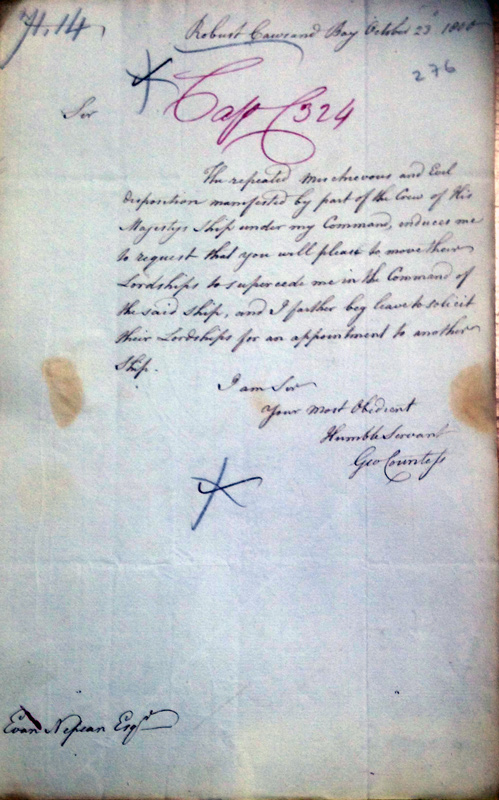 H.14
Robust Cawsand Bay October 23d 1800
276
Cap C324
Sir
The repeated mischievous and Evil
disposition manifested by part of the Crew of His
Majestys Ship under my Command, induces me
to request that you will please to move their
Lordships to supercede me in the Command of
the said Ship, and I farther beg leave to solicit
their Lordships for an appointment to another
Ship.
I am Sir
Your most Obedient
Humble Servant
Geo Countess
Evan Nepean Esqr